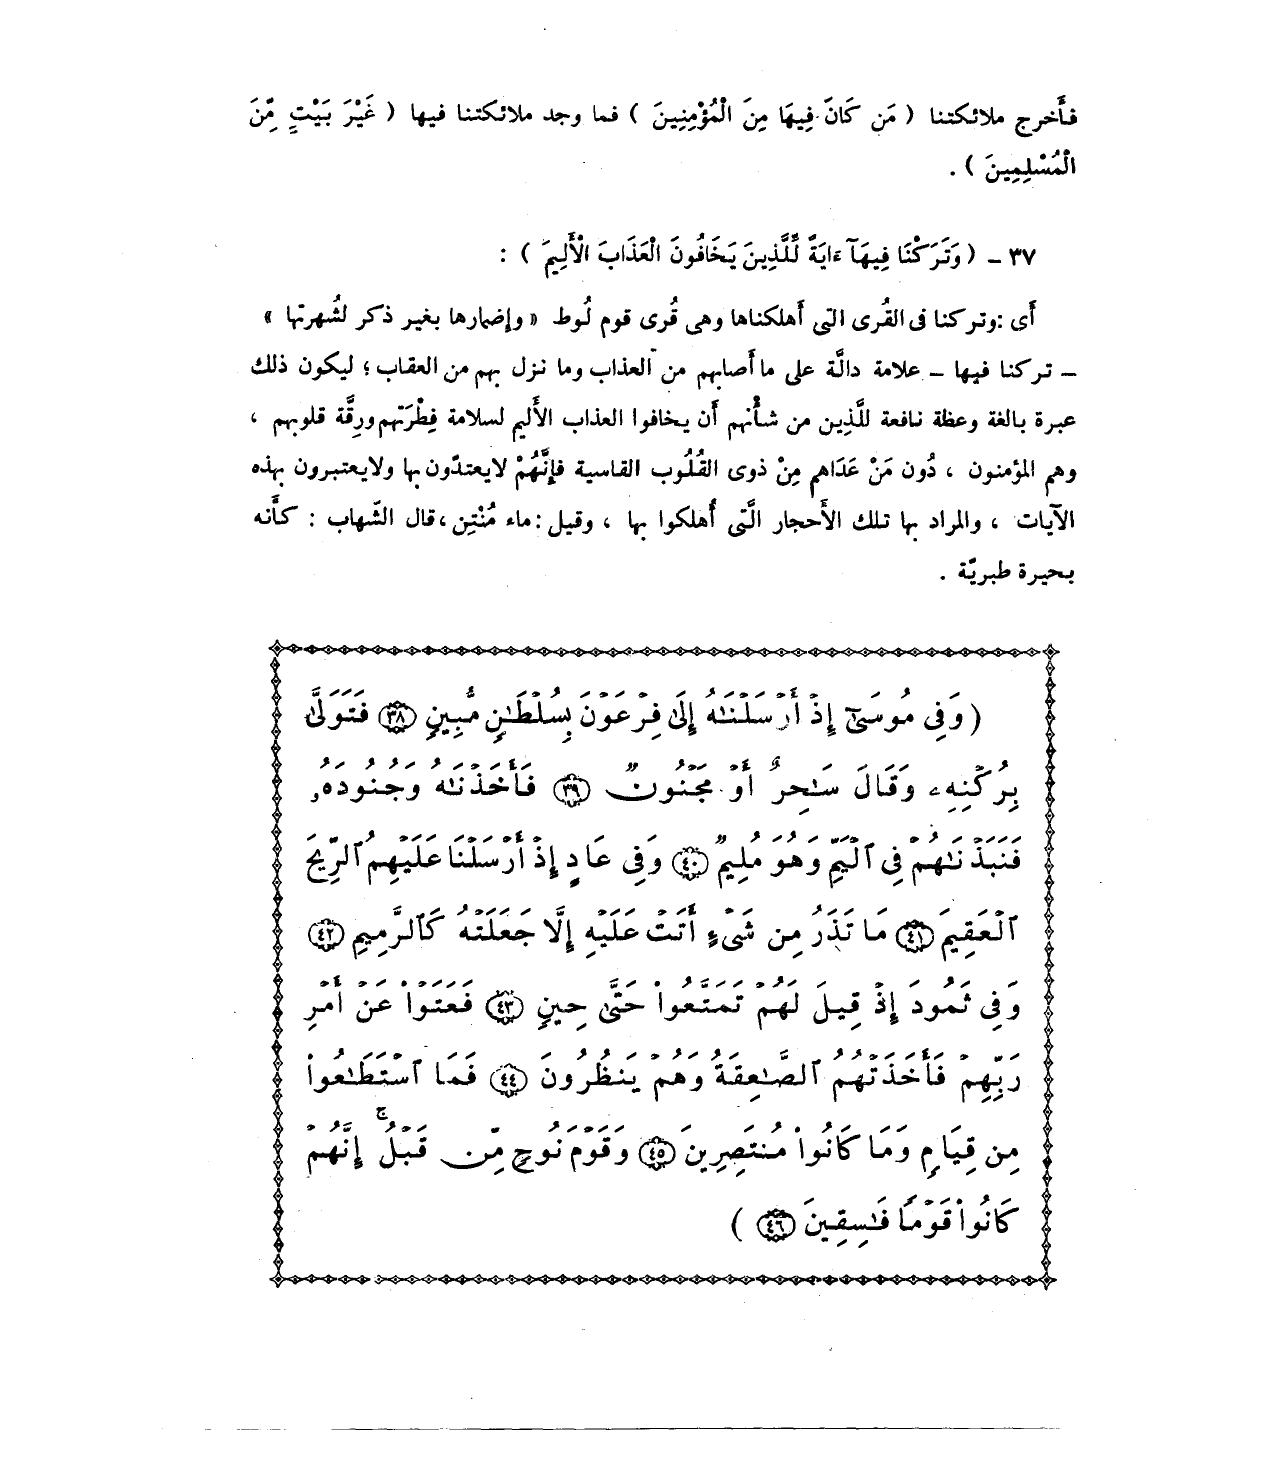 فأَخرج ملائكتنا ( مَن كَانَ فِيهَا مِنَ الْمُؤْمِنِينَ ) فما وجد ملائكتنا فيها ( غَيْرَ بَيْتٍ مِّنَ
الْمُسْلِمِينَ ) .
٣٧ – ( وَتَرَكْنَا فِيهَآ ءَايَةً لِّلَّذِينَ يَخَافُونَ الْعَذَابَ الْأَلِيمَ ) :
أَى : وتركنا فى القُرى التى أَهلكناها وهى قُرى قوم لُوط « وإضمارها بغير ذكر لشُهرتها »
– تركنا فيها – علامة دالَّة على ما أَصابهم من العذاب وما نزل بهم من العقاب ؛ ليكون ذلك
عبرة بالغة وعظة نافعة للَّذِين من شأْنهم أَن يخافوا العذاب الأَليم لسلامة فِطْرَتهم ورِقَّة قلوبهم ،
وهم المؤمنون ، دُون مَنْ عَدَاهم مِنْ ذوى القُلُوب القاسية فإِنَّهُمْ لا يعتدّون بها ولا يعتبرون بهذه
الآيات ، والمراد بها تلك الأَحجار الَّتى أُهلكوا بها ، وقيل : ماء مُنْتِن ، قال الشّهاب : كأَنه
بحيرة طبريّة .
( وَفِى مُوسَىٰٓ إِذْ أَرْسَلْنَـٰهُ إِلَىٰ فِرْعَوْنَ بِسُلْطَـٰنٍ مُّبِينٍ ٣٨ فَتَوَلَّىٰ
بِرُكْنِهِۦ وَقَالَ سَـٰحِرٌ أَوْ مَجْنُونٌ ٣٩ فَأَخَذْنَـٰهُ وَجُنُودَهُۥ
فَنَبَذْنَـٰهُمْ فِى ٱلْيَمِّ وَهُوَ مُلِيمٌ ٤٠ وَفِى عَادٍ إِذْ أَرْسَلْنَا عَلَيْهِمُ ٱلرِّيحَ
ٱلْعَقِيمَ ٤١ مَا تَذَرُ مِن شَىْءٍ أَتَتْ عَلَيْهِ إِلَّا جَعَلَتْهُ كَٱلرَّمِيمِ ٤٢
وَفِى ثَمُودَ إِذْ قِيلَ لَهُمْ تَمَتَّعُوا۟ حَتَّىٰ حِينٍ ٤٣ فَعَتَوْا۟ عَنْ أَمْرِ
رَبِّهِمْ فَأَخَذَتْهُمُ ٱلصَّـٰعِقَةُ وَهُمْ يَنظُرُونَ ٤٤ فَمَا ٱسْتَطَـٰعُوا۟
مِن قِيَامٍ وَمَا كَانُوا۟ مُنتَصِرِينَ ٤٥ وَقَوْمَ نُوحٍ مِّن قَبْلُ ۚ إِنَّهُمْ
كَانُوا۟ قَوْمًا فَـٰسِقِينَ ٤٦ )